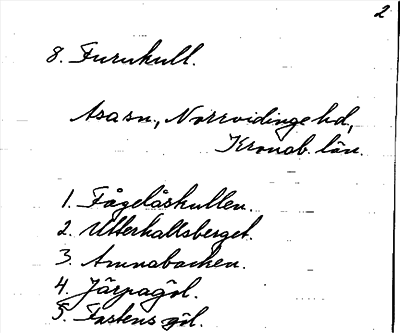 2
8. Furukull.
Asa sn., Norrvidinge hd,
Kronob. län.
1. Fågelåskullen.
2. Utterkallsberget.
3. Annabacken.
4. Järpagöl.
5. Fastens göl.